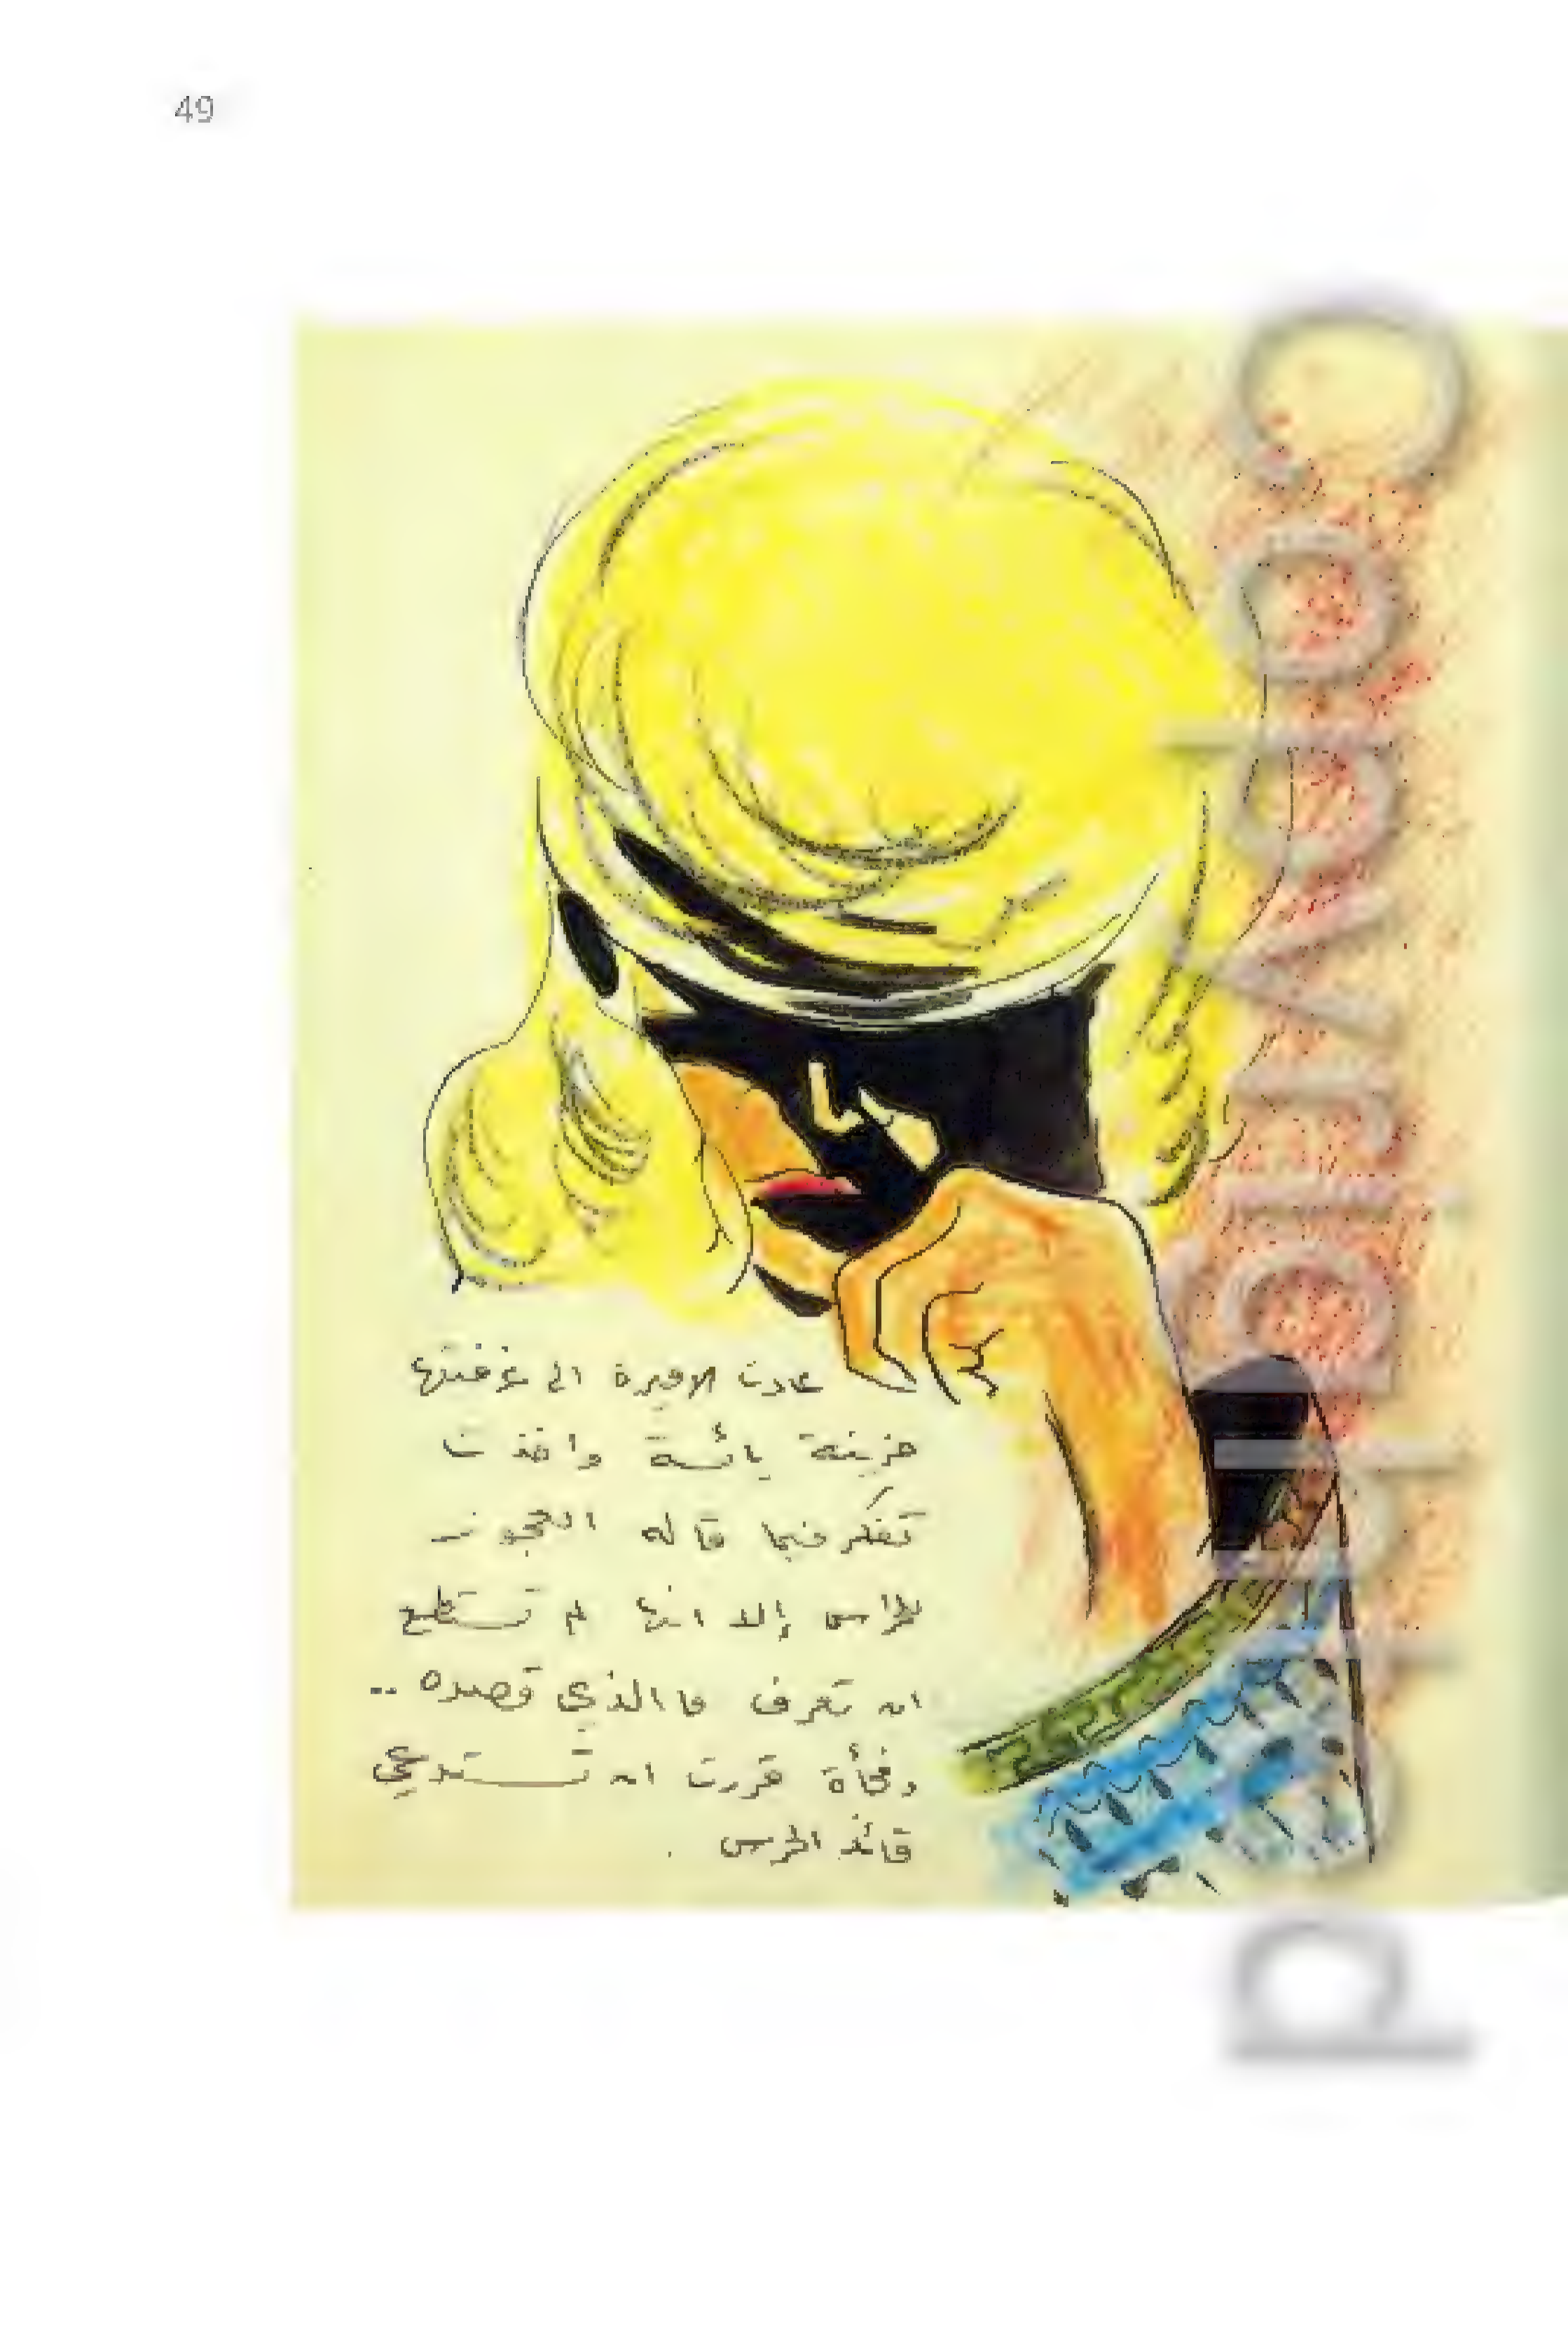 49
عادت الاميرة الى غرفتها
حزينة يائسة واخذت
تفكر فيما قاله العجوز
للحراس إلا انها لم تستطع
ان تعرف ما الذي قصده ..
وفجأة قررت ان تستدعي
قائد الحرس .